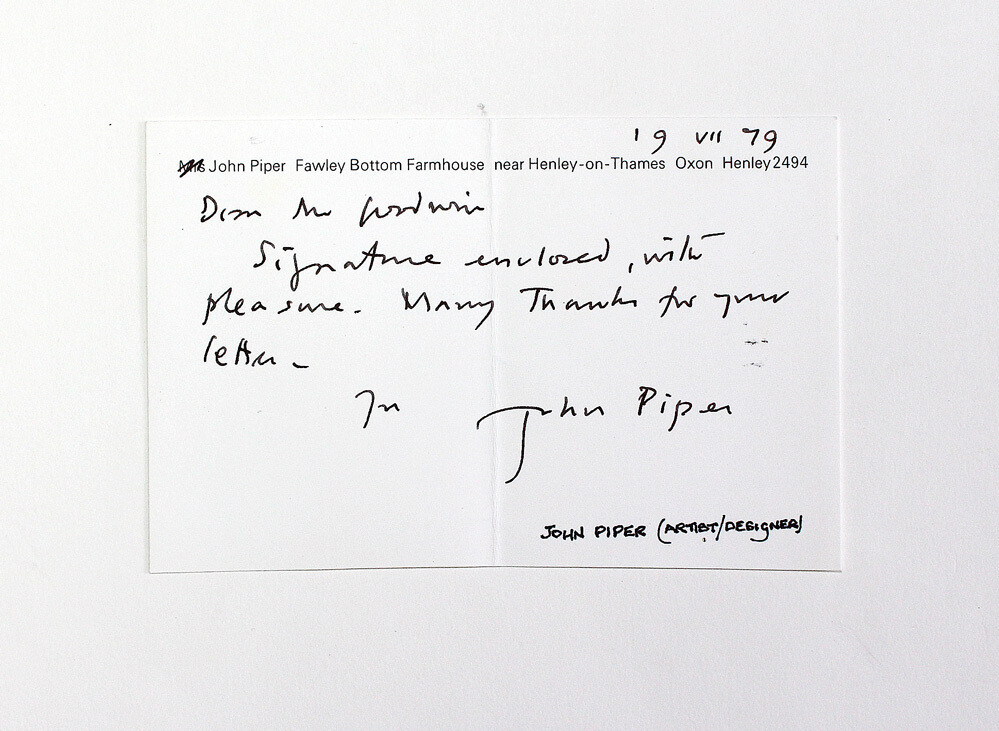 19 VII 79
Mrs John Piper Fawley Bottom Farmhouse near Henley-on-Thames Oxon Henley 2494
Dear Mr Goodwin
Signature enclosed, with
pleasure. Many Thanks for your
letter -
John Piper
JOHN PIPER (ARTIST/DESIGNER)